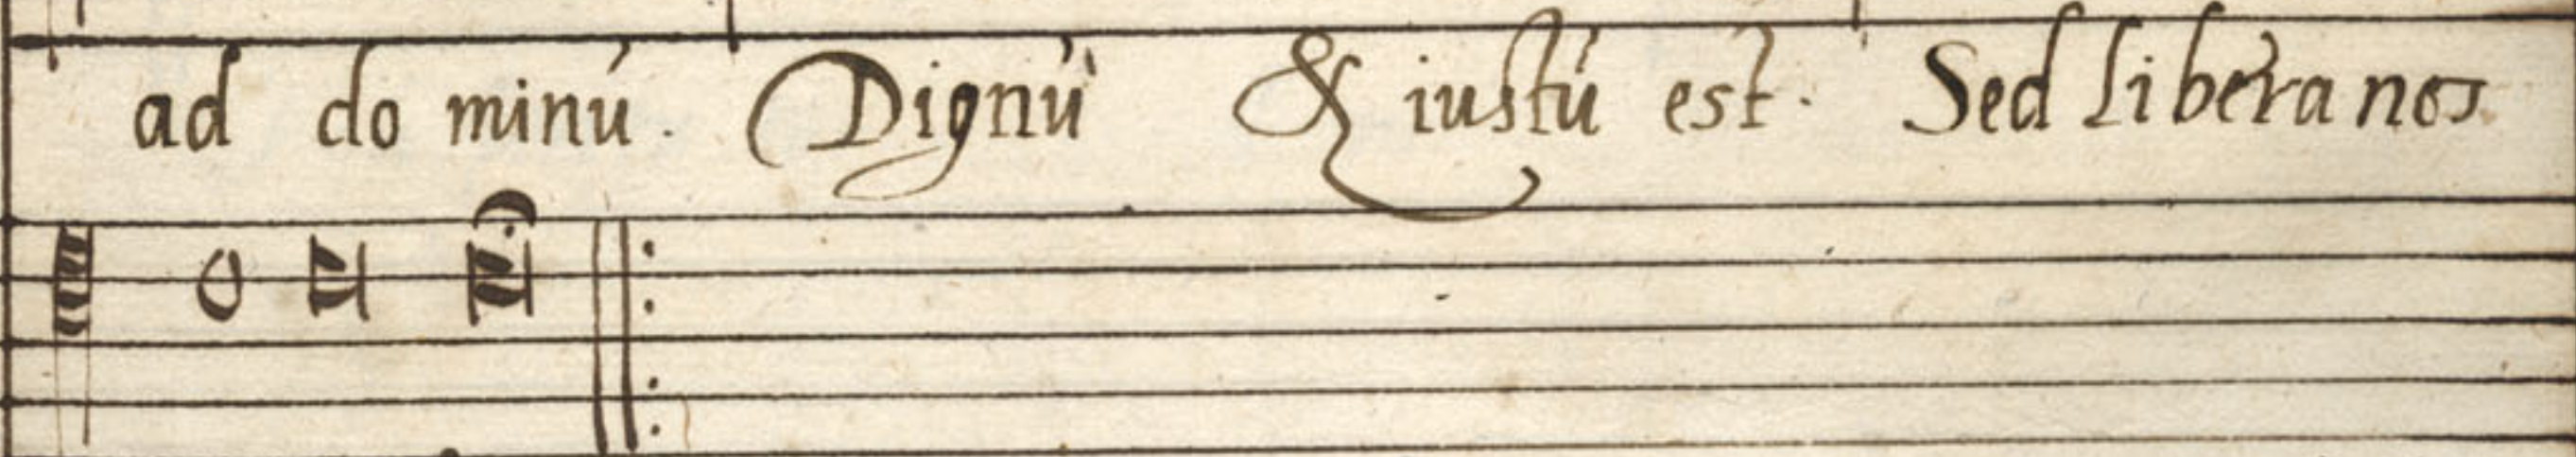 ad do minú. Dignú & iustú est. Sed libera nos